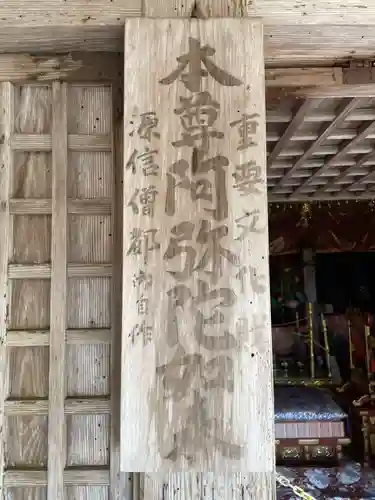 重要文化財
本尊阿弥陀如来
源信僧都御自作